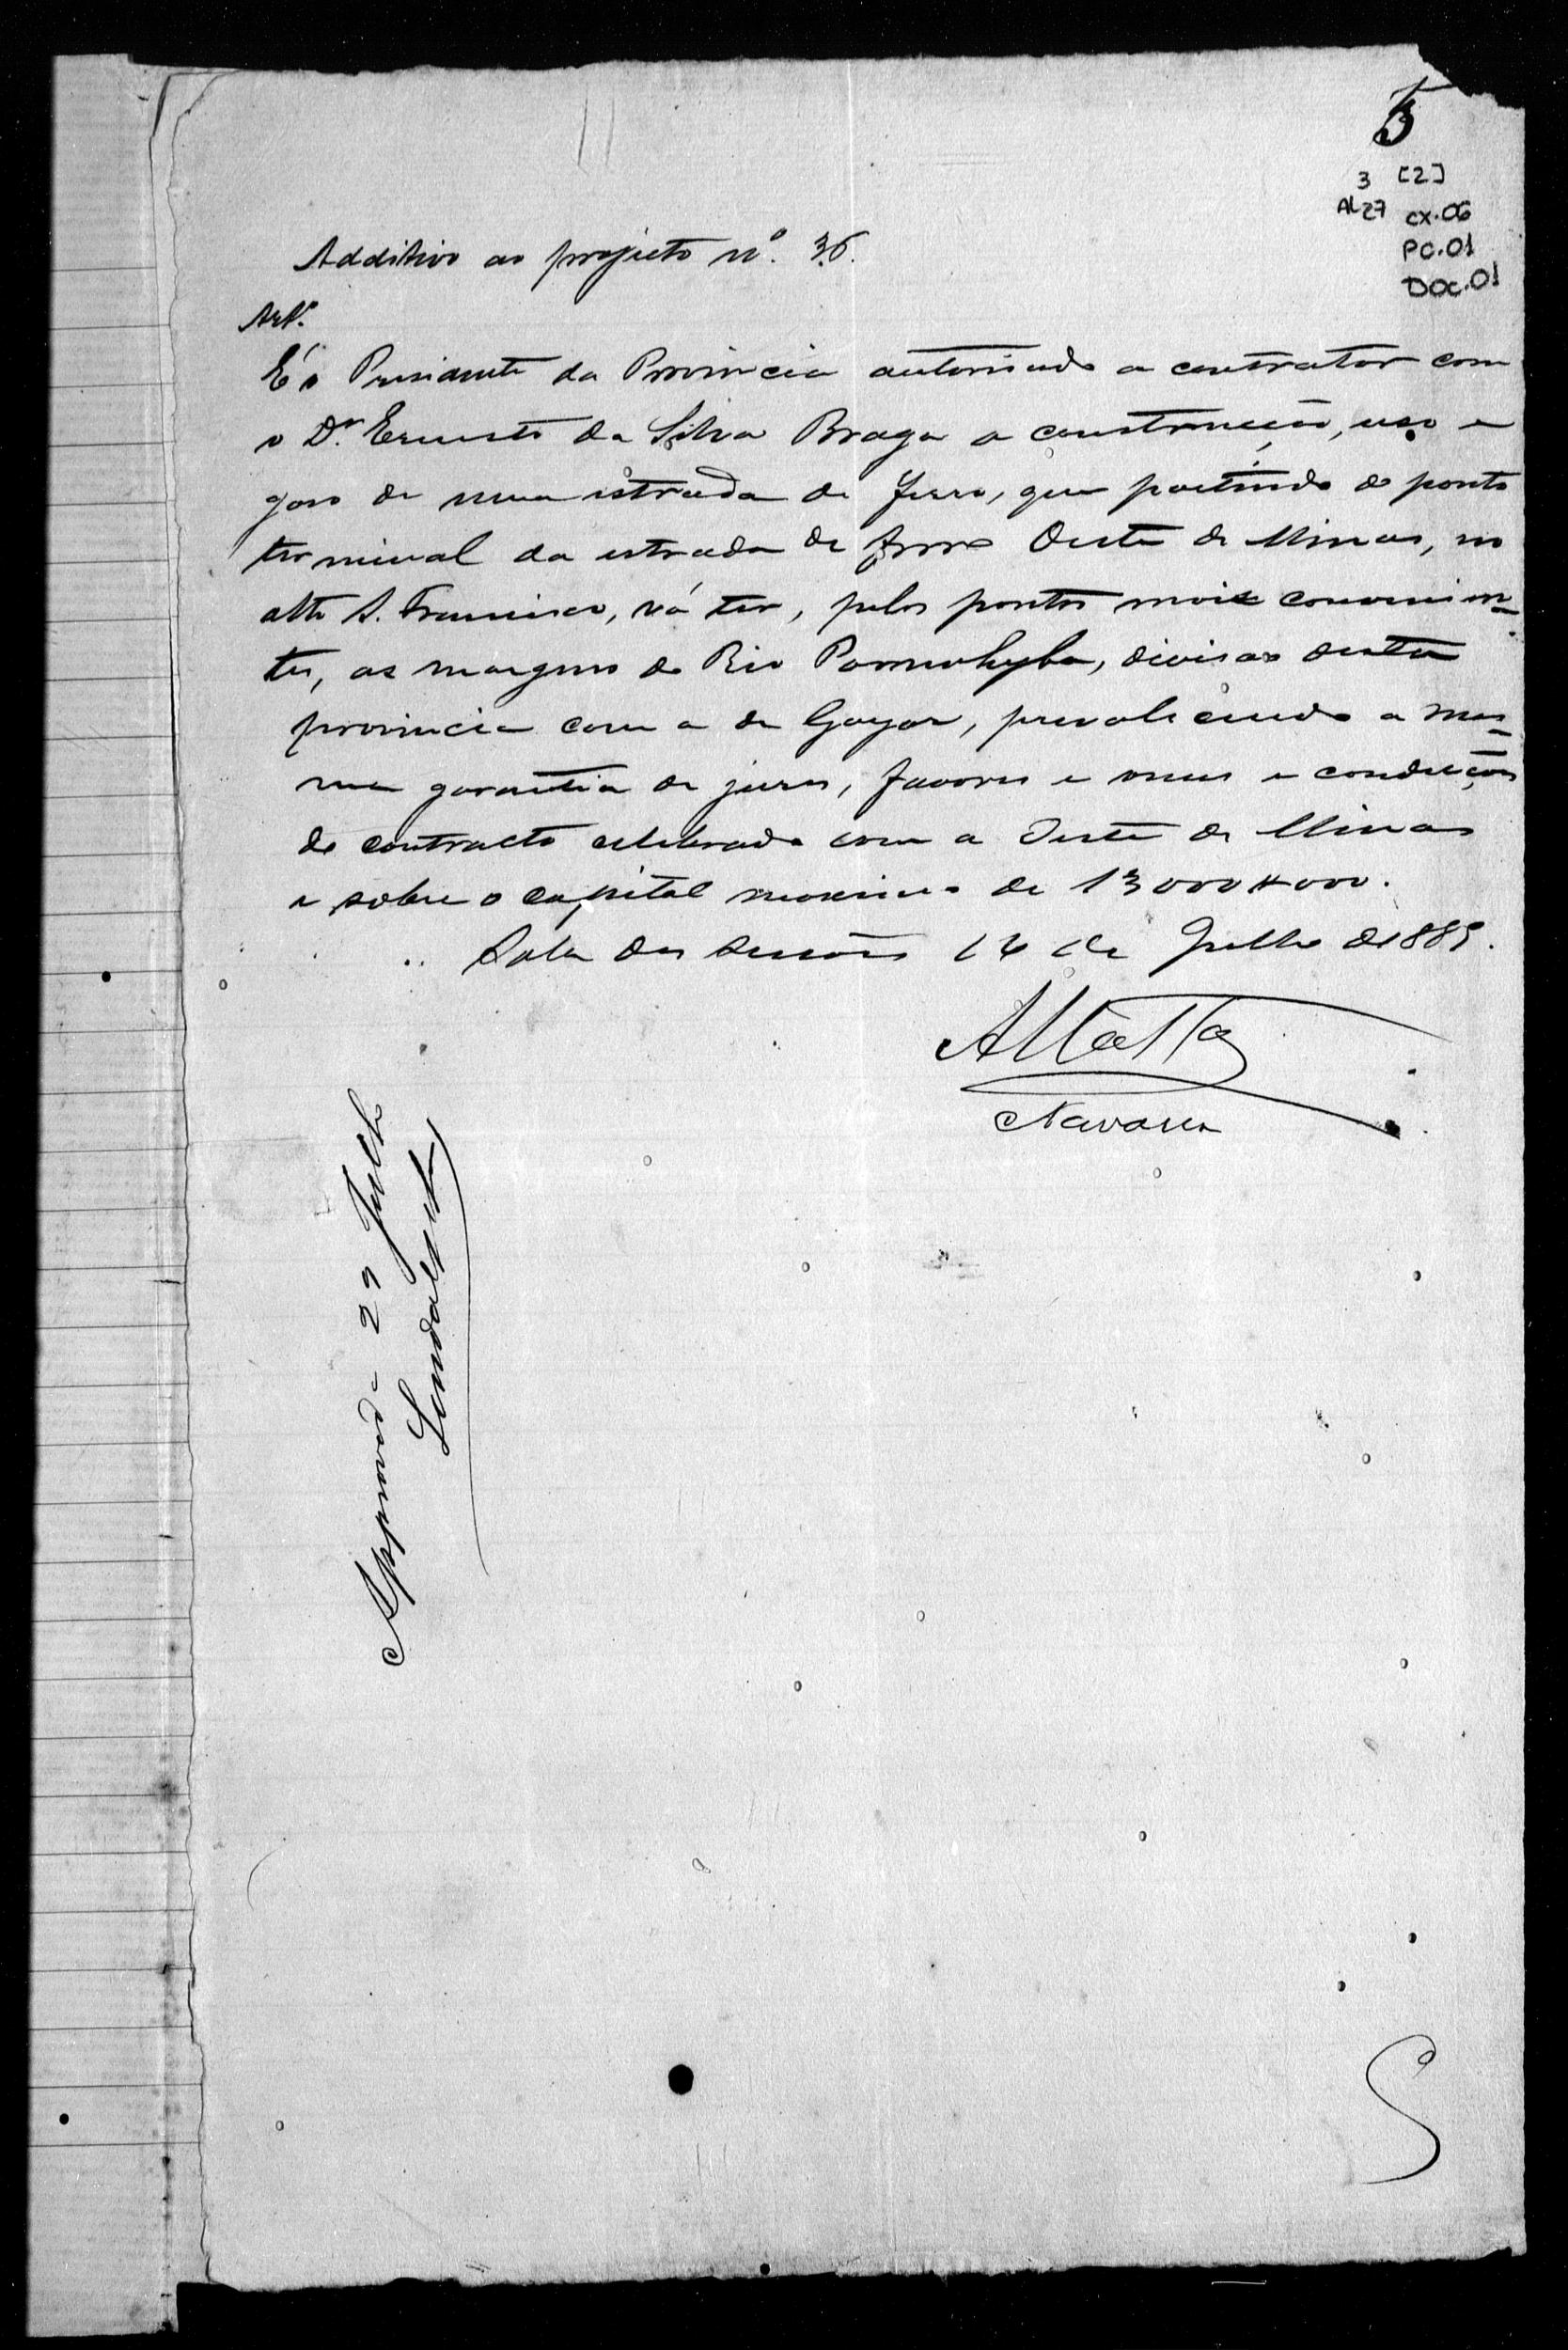 3 [2]
AL27 cx.06
PC.01
DOC.01
Additivo ao projecto nº. 36.
Artº.
É o Presidente da Provincia autorisado a contratar com
o Dr. Ernesto da Silva Braga a construcção, uso e
goso de uma estrada de ferro, que partindo do ponto
terminal da estrada de ferro Oeste de Minas, no
alto S. Francisco, vá ter, pelos pontos mais convenien-
tes, as margens do Rio Parnahyba, divisas desta
provincia com a de Goyas, prevalecendo a mes-
ma garantia de juros, favores e onus e condições
do contracto celebrado com a Oeste de Minas
e sobre o capital maximo de 13000#000.
Sala das sessões 16 de Julho de 1885.
AMatta
Navarro
Approvado 29 Julho